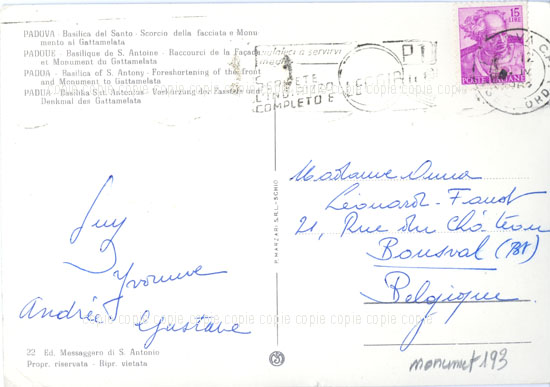 PADOVA - Basilica del Santo - Scorcio della facciata e Monu-
mento al Gattamelata
PADOUE - Basilique de S. Antoine - Raccourci de la Façade
et Monument du Gattamelata
PADOA - Basilica of S. Antony - Foreshortening of the front
and Monument to Gattamelata
PADUA - Basilika S.t Antonius - Verkürzung der Fassade und
Denkmal des Gattamelata
15
LIRE
POSTE ITALIANE
COMPLETO E
copie copie copie copie copie copie copie copie
P. MARZARI S.R.L. - SCHIO
Guy
Yvonne
Andrée Gustave
Madame Anna
Léonard-Faust
21, Rue du Château
Bousval (Bt)
Belgique
copie copie copie copie copie copie copie copie
22 Ed. Messaggero di S. Antonio
Propr. riservata - Ripr. vietata
monumet 193